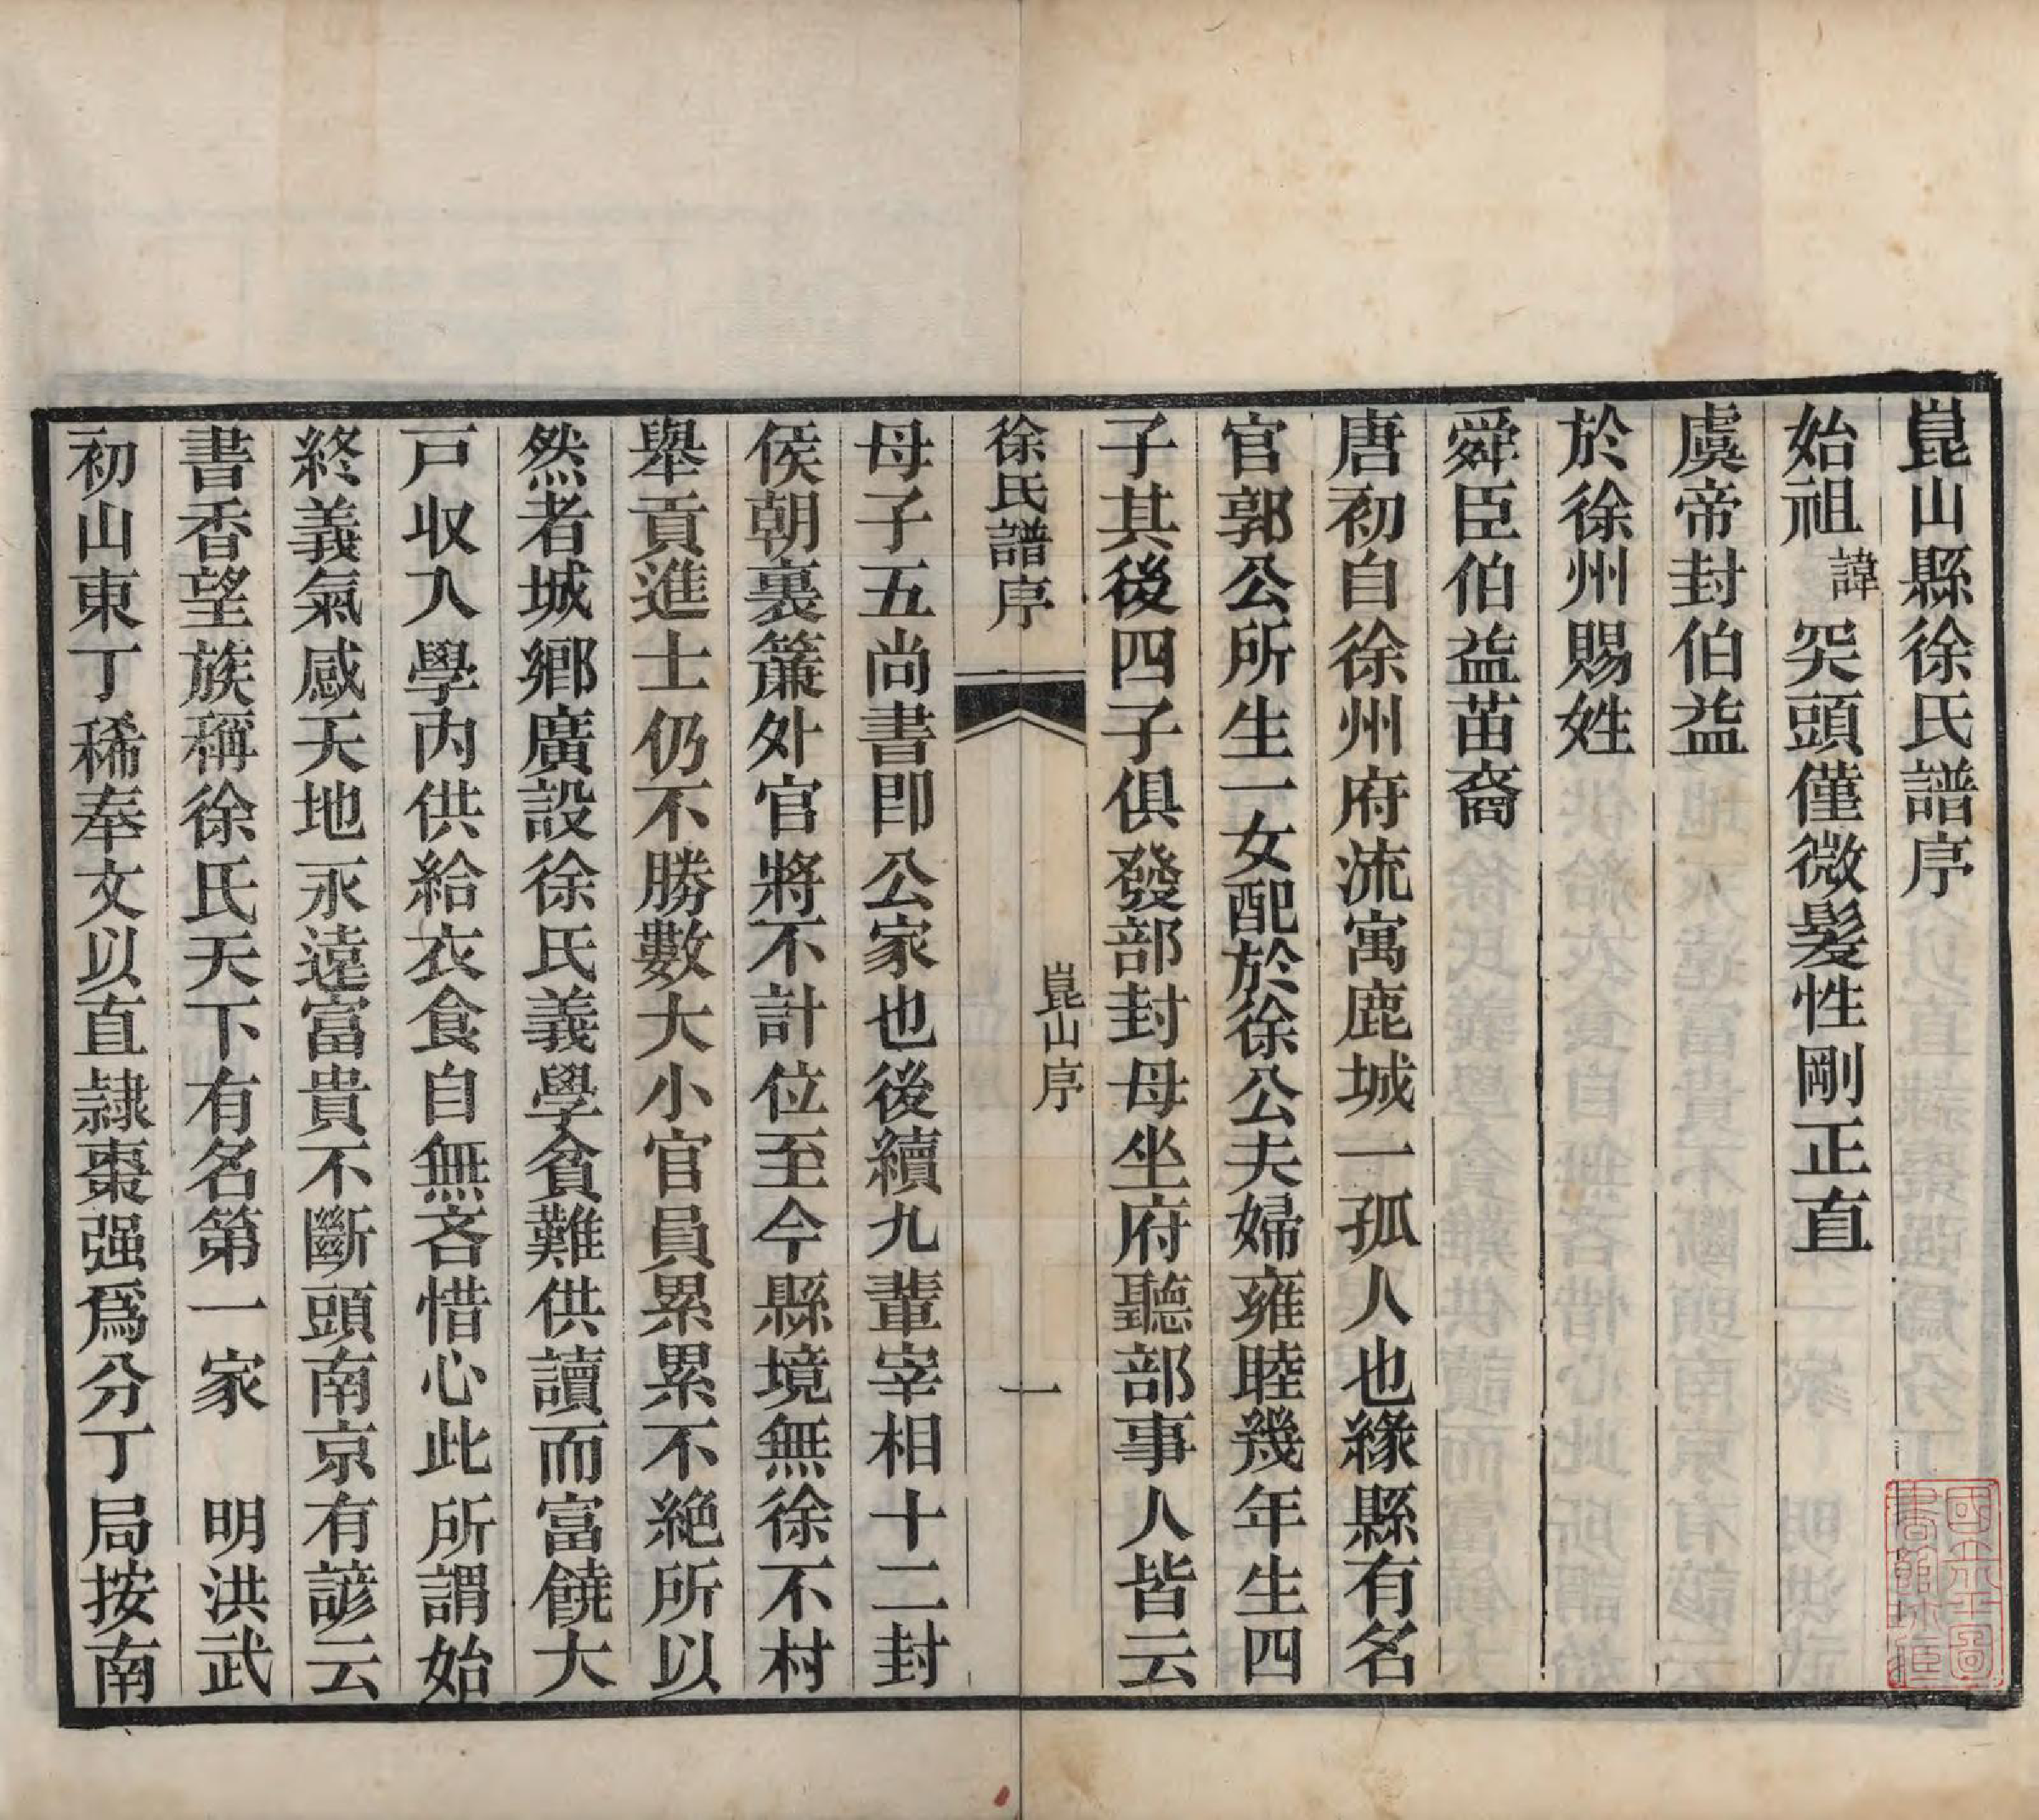 崑山縣徐氏譜序
始祖諱突頭僅微髮性剛正直
虞帝封伯益
於徐州賜姓
舜臣伯益苗裔
唐初自徐州府流寓鹿城一孤人也緣縣有名
官郭公所生一女配於徐公夫婦雍睦幾年生四
子其後四子俱發部封母坐府聽部事人皆云
徐氏譜序 崑山序 一
母子五尚書即公家也後續九輩宰相十二封
侯朝裏簾外官將不計位至今縣境無徐不村
舉貢進士仍不勝數大小官員累累不絶所以
然者城鄉廣設徐氏義學貧難供讀而富饒大
戸収入學內供給衣食自無吝惜心此所謂始
終義氣感天地永遠富貴不斷頭南京有諺云
書香望族稱徐氏天下有名第一家 明洪武
初山東丁稀奉文以直隷棗强爲分丁局按南